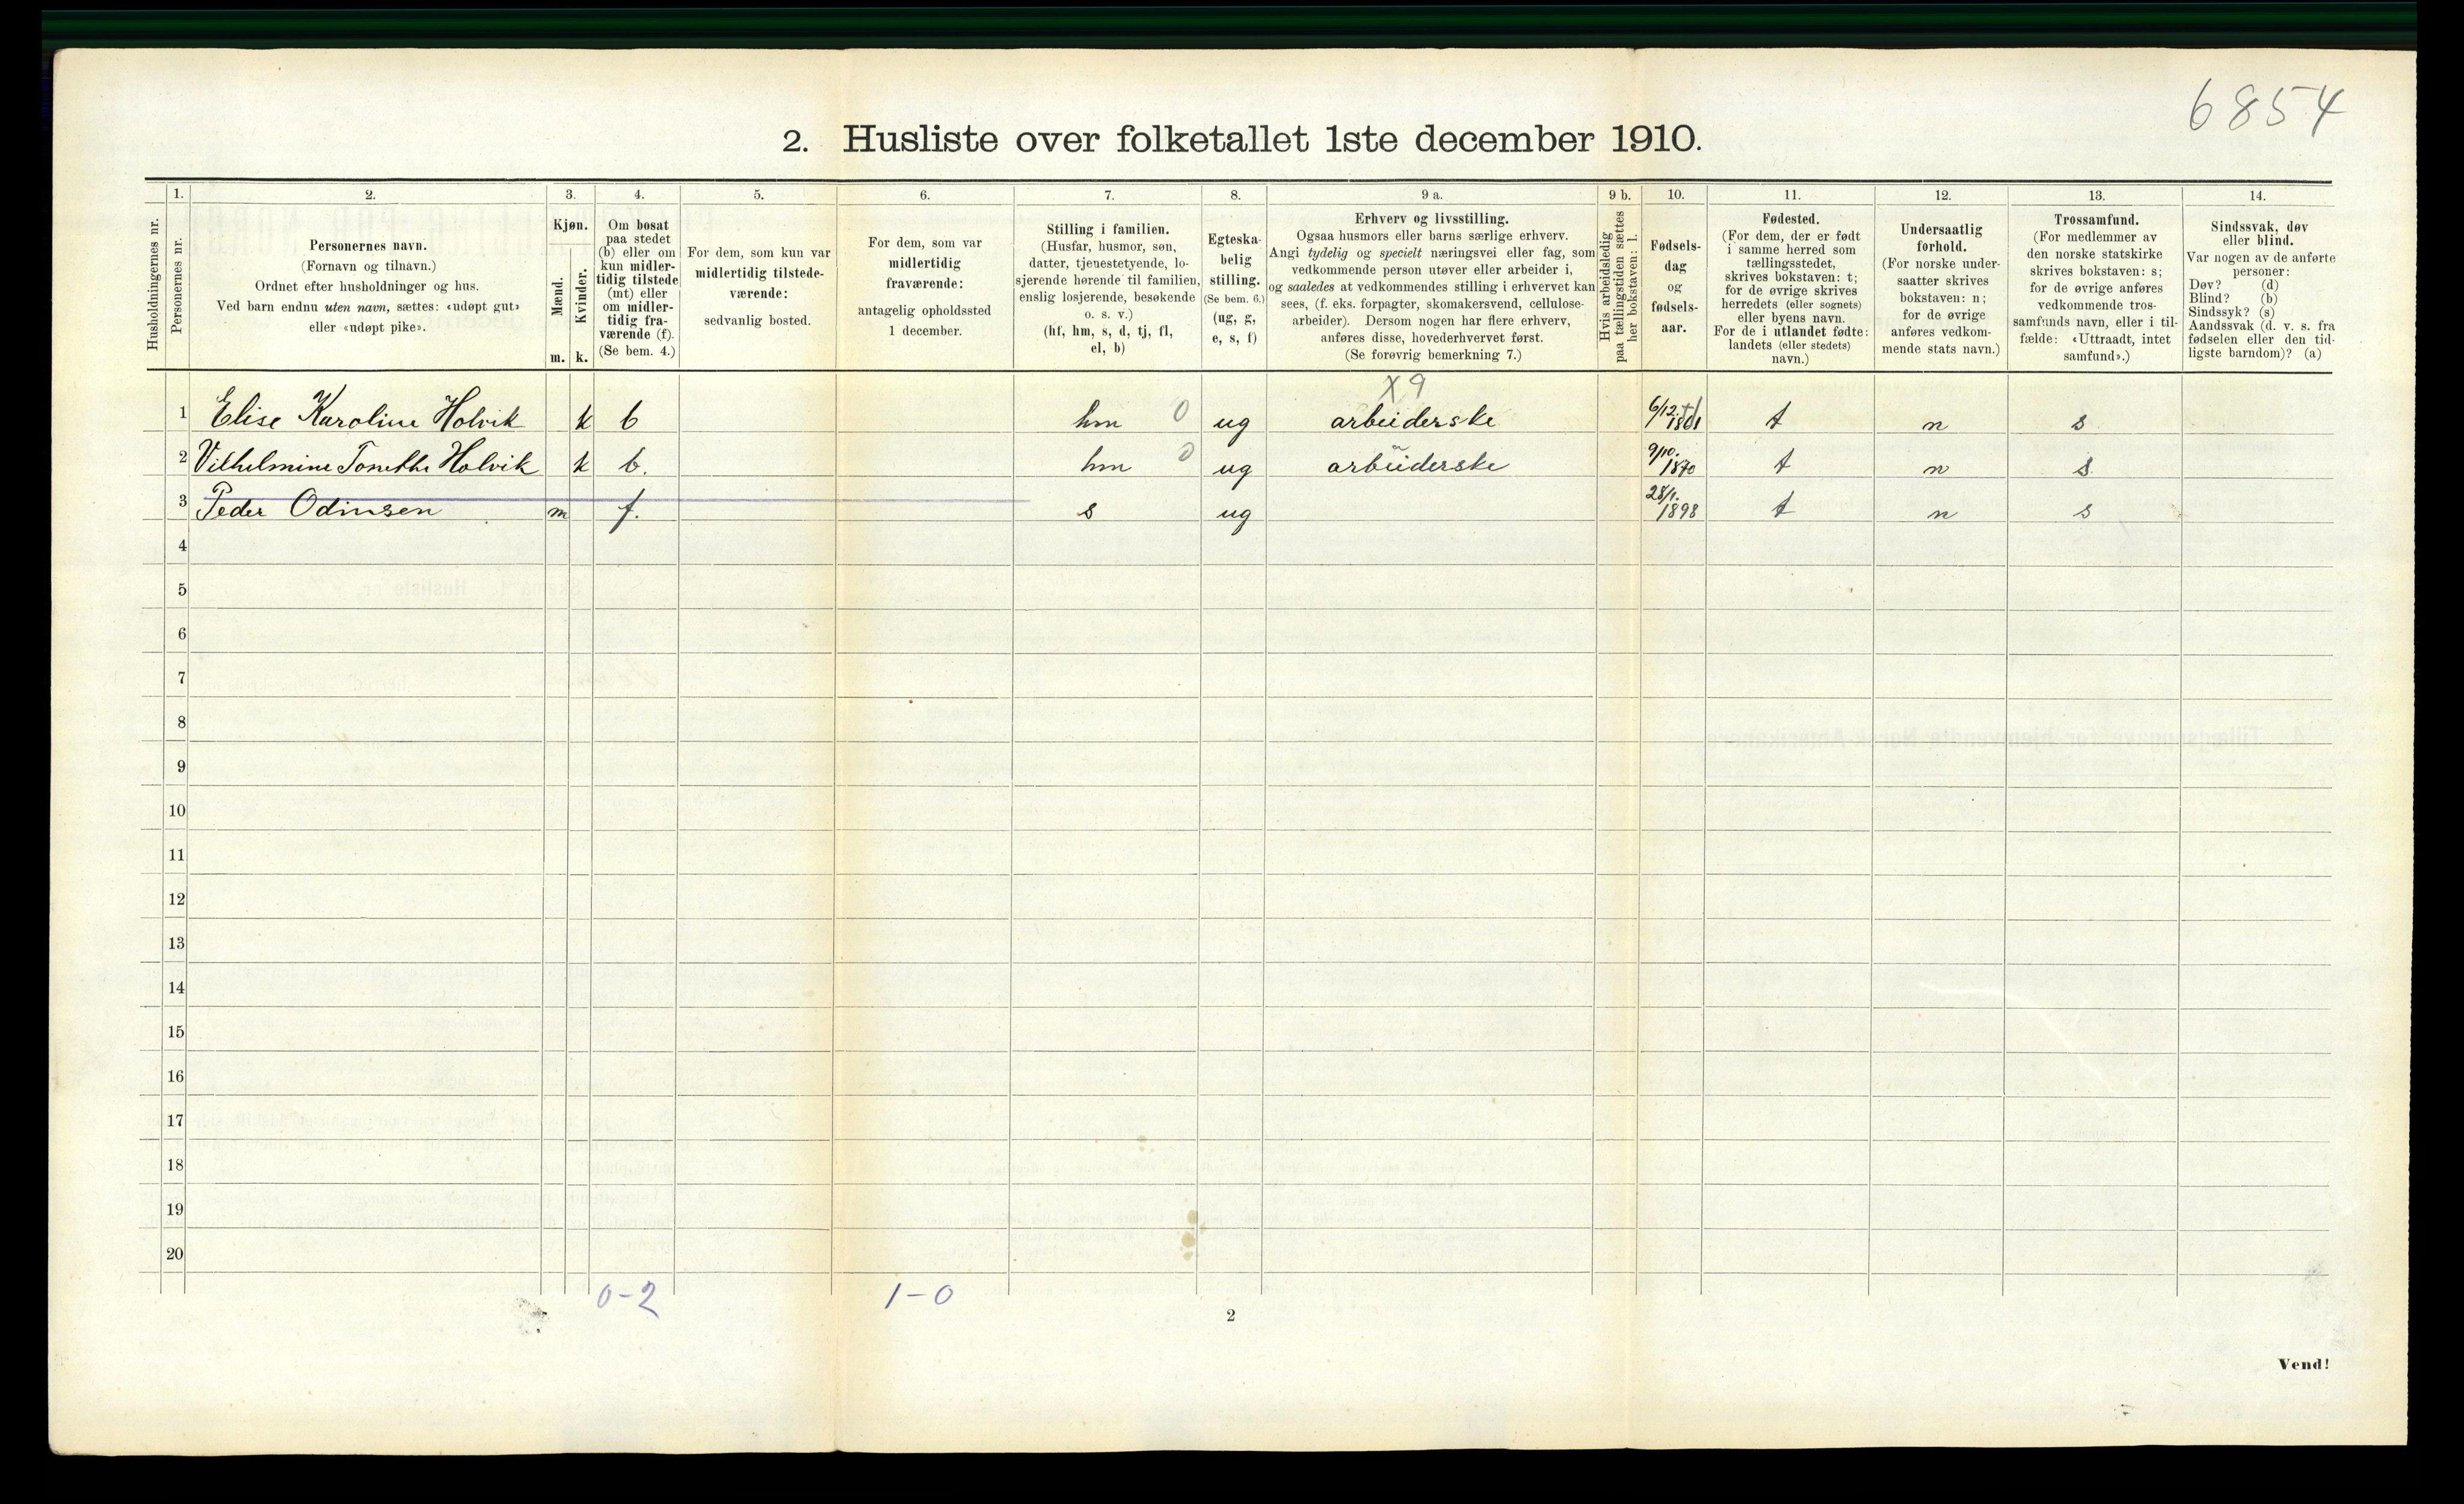 6854
2. Husliste over folketallet 1ste december 1910.
1. 2. 3. 4. 5. 6. 7. 8. 9 a. 9 b. 10. 11. 12. 13. 14.
Husholdningernes nr.
Personernes nr.
Personernes navn.
(Fornavn og tilnavn.)
Ordnet efter husholdninger og hus.
Ved barn endnu uten navn, sættes: «udøpt gut»
eller «udøpt pike».
Kjøn.
Mænd.
Kvinder.
m. k.
Om bosat
paa stedet
(b) eller om
kun midler-
tidig tilstede
(mt) eller
om midler-
tidig fra-
værende (f).
(Se bem. 4.)
For dem, som kun var
midlertidig tilstede-
værende:
sedvanlig bosted.
For dem, som var
midlertidig
fraværende:
antagelig opholdssted
1 december.
Stilling i familien.
(Husfar, husmor, søn,
datter, tjenestetyende, lo-
sjerende hørende til familien,
enslig losjerende, besøkende
o. s. v.)
(hf, hm, s, d, tj, fl,
el, b)
Egteska-
belig
stilling.
(Se bem. 6.)
(ug, g,
e, s, f)
Erhverv og livsstilling.
Ogsaa husmors eller barns særlige erhverv.
Angi tydelig og specielt næringsvei eller fag, som
vedkommende person utøver eller arbeider i,
og saaledes at vedkommendes stilling i erhvervet kan
sees, (f. eks. forpagter, skomakersvend, cellulose-
arbeider). Dersom nogen har flere erhverv,
anføres disse, hovederhvervet først.
(Se forøvrig bemerkning 7.)
Hvis arbeidsledig
paa tællingstiden sættes
her bokstaven: l.
Fødsels-
dag
og
fødsels-
aar.
Fødested.
(For dem, der er født
i samme herred som
tællingsstedet,
skrives bokstaven: t;
for de øvrige skrives
herredets (eller sognets)
eller byens navn.
For de i utlandet fødte:
landets (eller stedets)
navn.)
Undersaatlig
forhold.
(For norske under-
saatter skrives
bokstaven: n;
for de øvrige
anføres vedkom-
mende stats navn.)
Trossamfund.
(For medlemmer av
den norske statskirke
skrives bokstaven: s;
for de øvrige anføres
vedkommende tros-
samfunds navn, eller i til-
fælde: «Uttraadt, intet
samfund».)
Sindssvak, døv
eller blind.
Var nogen av de anførte
personer:
Døv? (d)
Blind? (b)
Sindssyk? (s)
Aandssvak (d. v. s. fra
fødselen eller den tid-
ligste barndom)? (a)
X9
1 Elise Karoline Holvik k b hm 0 ug arbeiderske 6/12. t n s
2 Vilhelmine Tonette Holvik k b. hm 0 ug arbeiderske 9/10. 1870 t n s
3 Peder Odinsen m f. s ug 28/1. 1898 t n s
4
5
6
7
8
9
10
11
12
13
14
15
16
17
18
19
20
0-2 1-0
2
Vend!